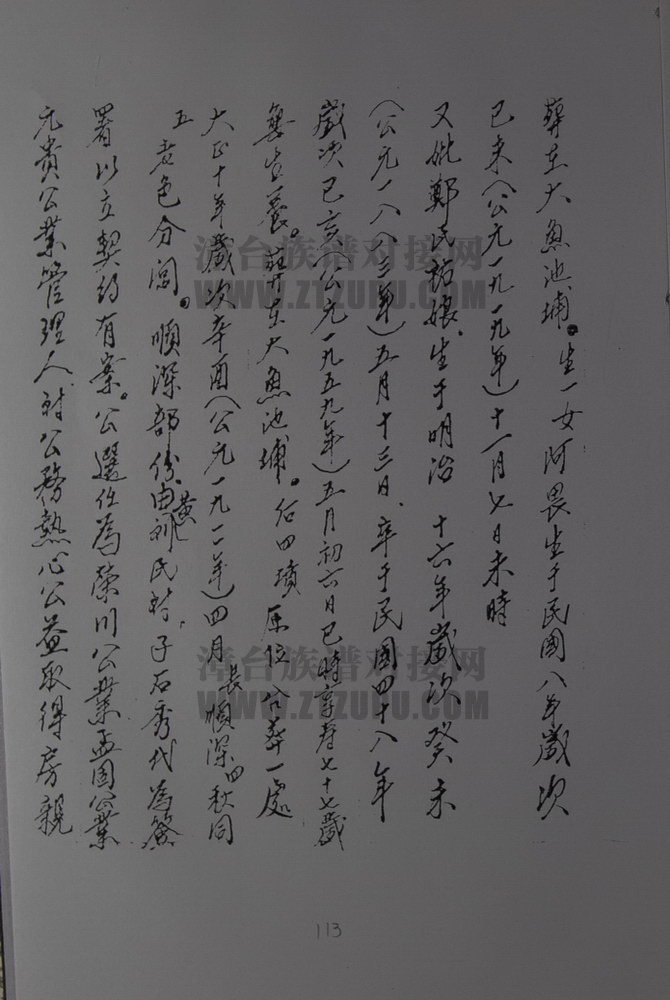 葬在大魚池埔。生一女阿畏生于民國八年歲次
己未（公元一九一九年）十一月七日未時
又妣鄭氏 娘、生于明治 十六年歲次癸未
（公元一八八三年）五月十三日、卒于民國四十八年
歲次己亥（公元一九五九年）五月初六日巳時享壽七十七歲
無生養。葬在大魚池埔。 四 原位合葬一處
大正十年歲次辛酉（公元一九二一年）四月 長順深四秋同
五 色分鬮。順深部份由 黃氏 子石秀代為簽
署以立契約有案。公選任為榮川公業孟國公業
元貴公業管理人 公務熱心公益取得房親
113
漳台族谱对接网
WWW.ZTZUPU.COM
漳台族谱对接网
WWW.ZTZUPU.COM